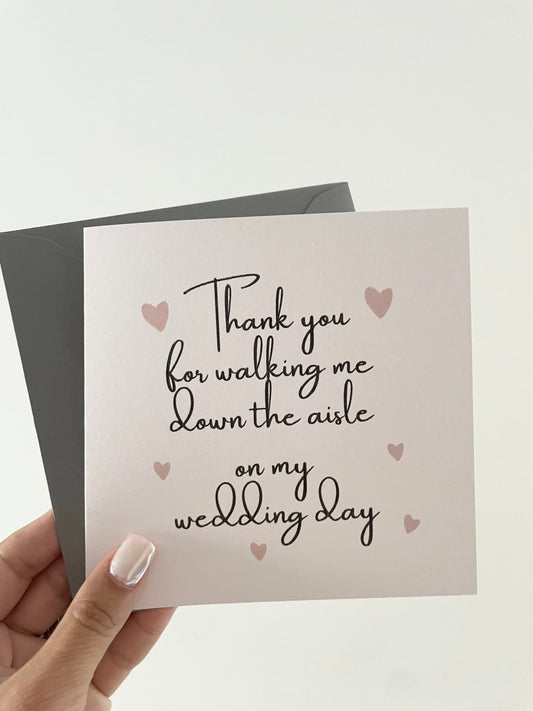 Thank you
for walking me
down the aisle
on my
wedding day